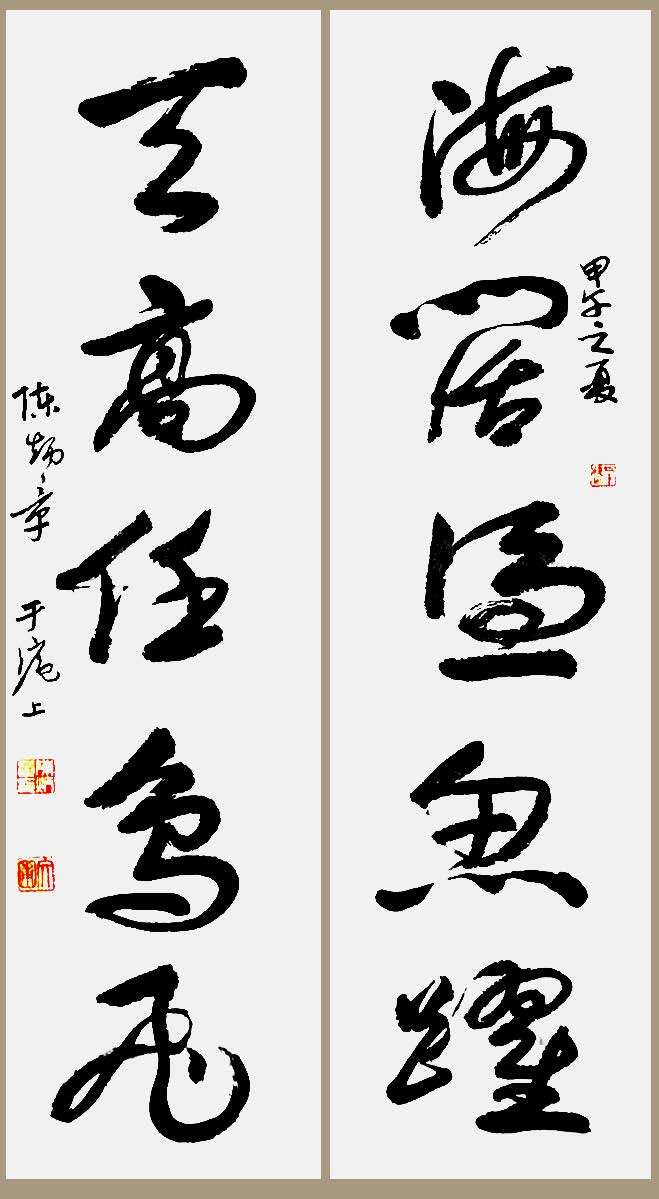 海阔凭鱼跃
甲午之夏
天高任鸟飞
陈炳章
于沪上